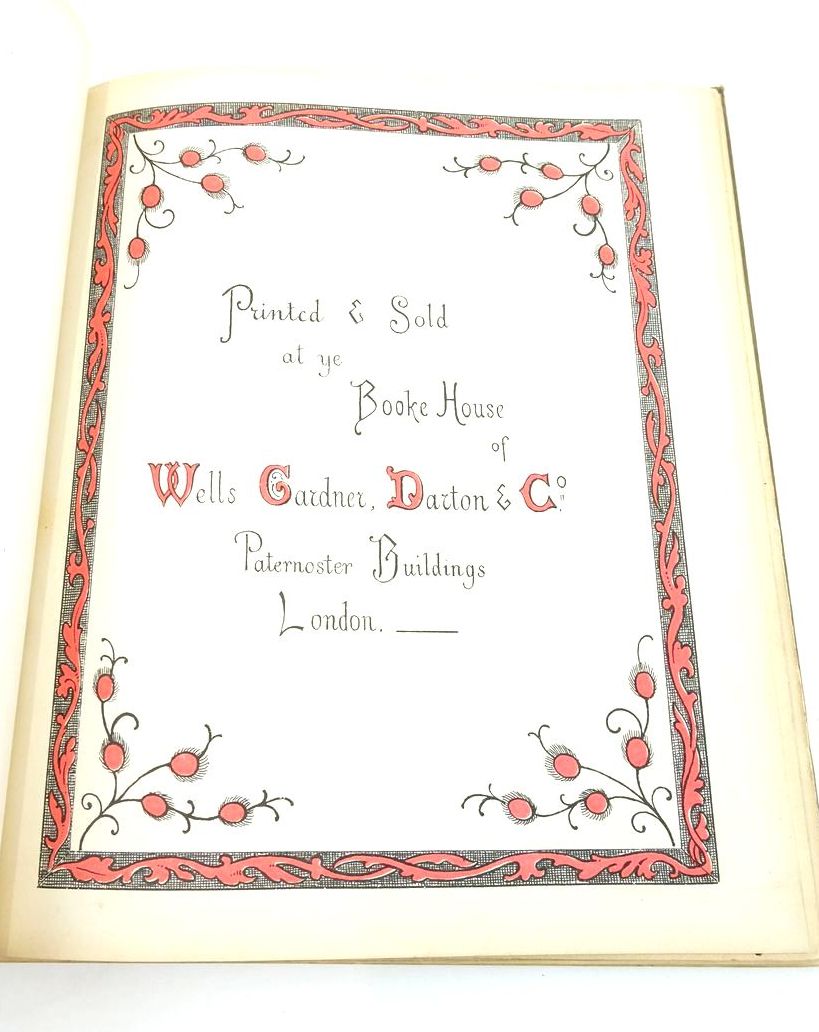 Printed & Sold
at ye
Booke House
of
Wells Gardner, Darton & Co.
Paternoster Buildings
London.